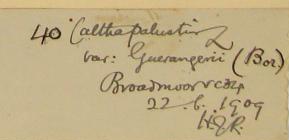 40 Caltha palustris L
var: Guerangerii (Bor.)
Broadmoor v.c.34
22. 6. 1909